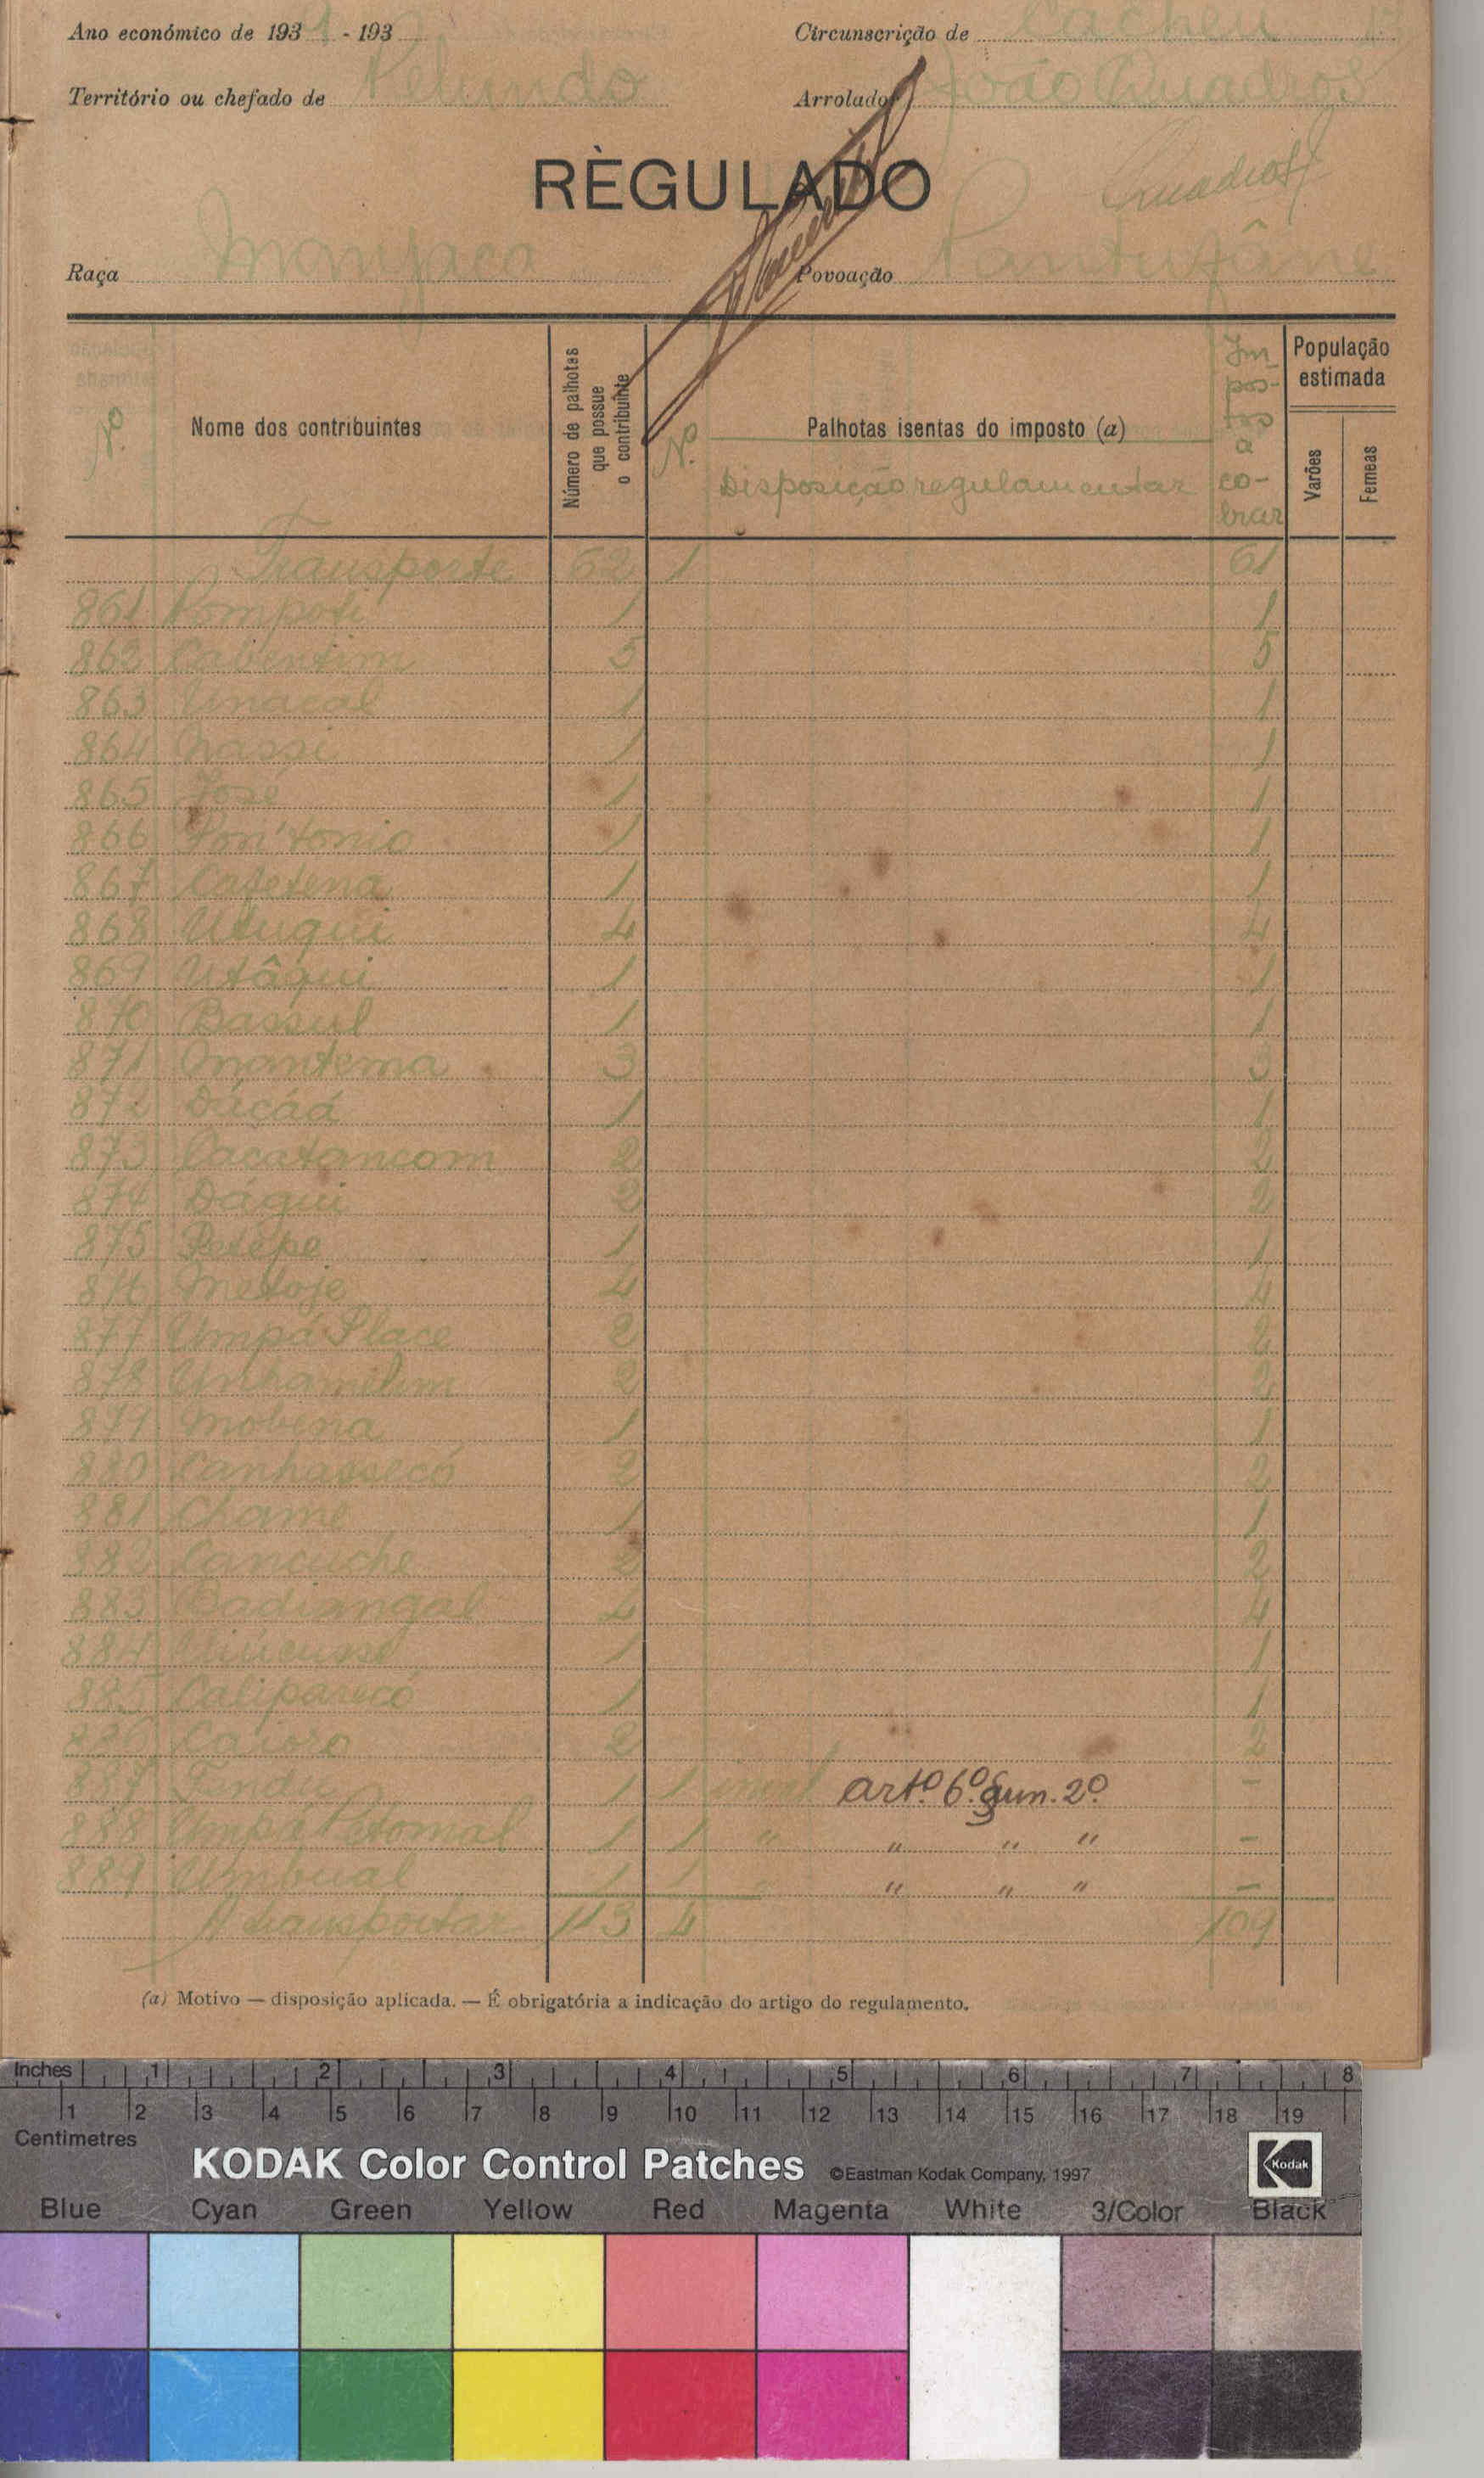 Ano económico de 1931 - 193
Circunscrição de Cacheu
Território ou chefado de Pelundo
Arrolador João Quadros
RÈGULADO
Quadros
Raça Manjaca
Povoação
Nº
Nome dos contribuintes
Número de palhotas que possue o contribuinte
Nº
Palhotas isentas do imposto (a)
Disposição regulamentar
Im-
pos-
tos
a
co-
brar
População estimada
Varões
Femeas
Transporte 62 1 61
861 Pompoti 1 1
862 Cabentim 5 5
863 Unacal 1 1
864 Nassi 1 1
865 José 1 1
866 Pon'tonio 1 1
867 Cafetena 1 1
868 Utuqui 4 4
869 Utâqui 1 1
870 Bassul 1 1
871 Mantema 3 3
872 Dúcáá 1 1
873 Cacatancom 2 2
874 Dáqui 2 2
875 Petépe 1 1
876 Metoje 4 4
877 Umpá Place 2 2
878 2 2
879 Mobena 1 1
880 Canhassecó 2 2
881 Chame 1 1
882 Cancuche 2 2
883 Badiangal 4 4
884 1 1
885 1 1
886 Caioro 2 2
887 1 1 artº 6º § un. 2º -
888 1 1 " " " " -
889 Umbual 1 1 " " " -
A transportar 113 4 109
(a) Motivo — disposição aplicada. — É obrigatória a indicação do artigo do regulamento.
Inches 1 2 3 4 5 6 7 8
1 2 3 4 5 6 7 8 9 10 11 12 13 14 15 16 17 18 19
Centimetres
KODAK Color Control Patches ©Eastman Kodak Company, 1997 Kodak
Blue Cyan Green Yellow Red Magenta White 3/Color Black